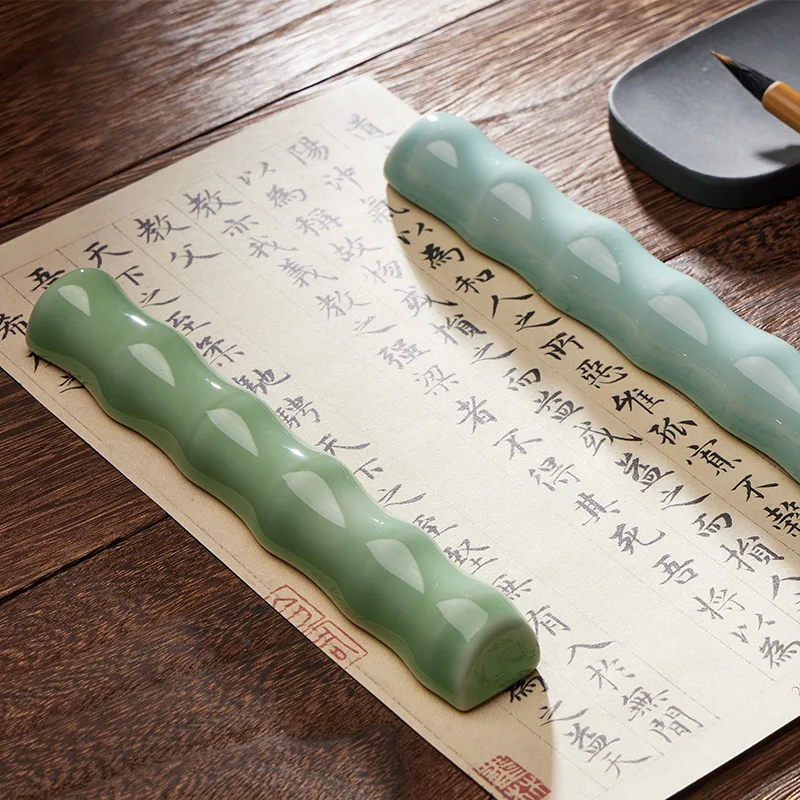 道
陽沖氣以為和人之所惡惟孤寡不穀
以為稱故物或損之而益或益之而損人
教亦我義教之强梁者不得其死吾將以為
教父
天下之至柔馳騁天下之至堅無有入於無間
吾為之益天
希